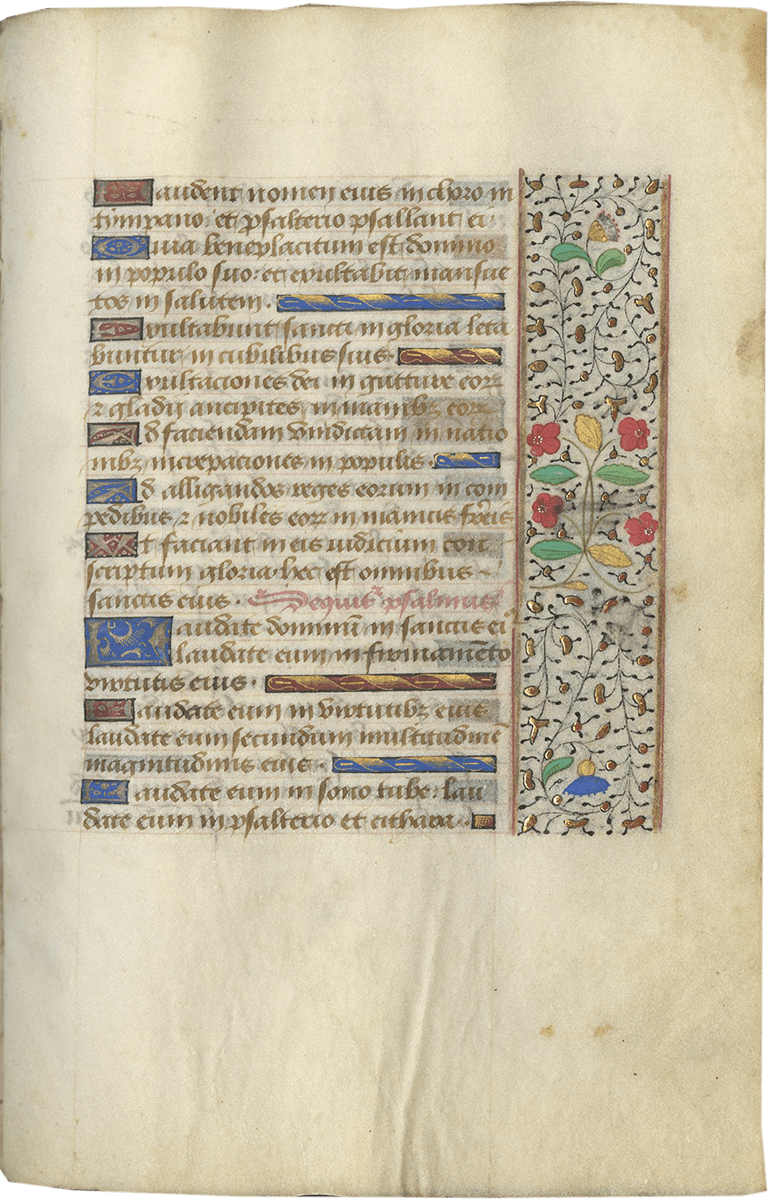 Laudent nomen eius in choro in
tympano et psalterio psallant ei
Quia beneplacitum est domino
in populo suo: et exultabit mansue
tos in salutem.
Exultabunt sancti in gloria leta
buntur in cubilibus suis.
Exultaciones dei in gutture eorꝝ
⁊ gladii ancipites in manibꝫ eorꝝ
Ad faciendam vindictam in natio
nibꝫ increpaciones in populis.
Ad alligandos reges eorum in com
pedibus ⁊ nobiles eorꝝ in manicis ferreis
Ut faciant in eis iudicium con
scriptum gloria hec est omnibus
sanctis eius. psalmus
Laudate dominū in sanctis eiꝰ
laudate eum in firmamēto
virtutis eius.
Laudate eum in virtutibꝫ eius
laudate eum secundum multitudinē
magnitudinis eius.
Laudate eum in sono tube: lau
date eum in psalterio et cithara.